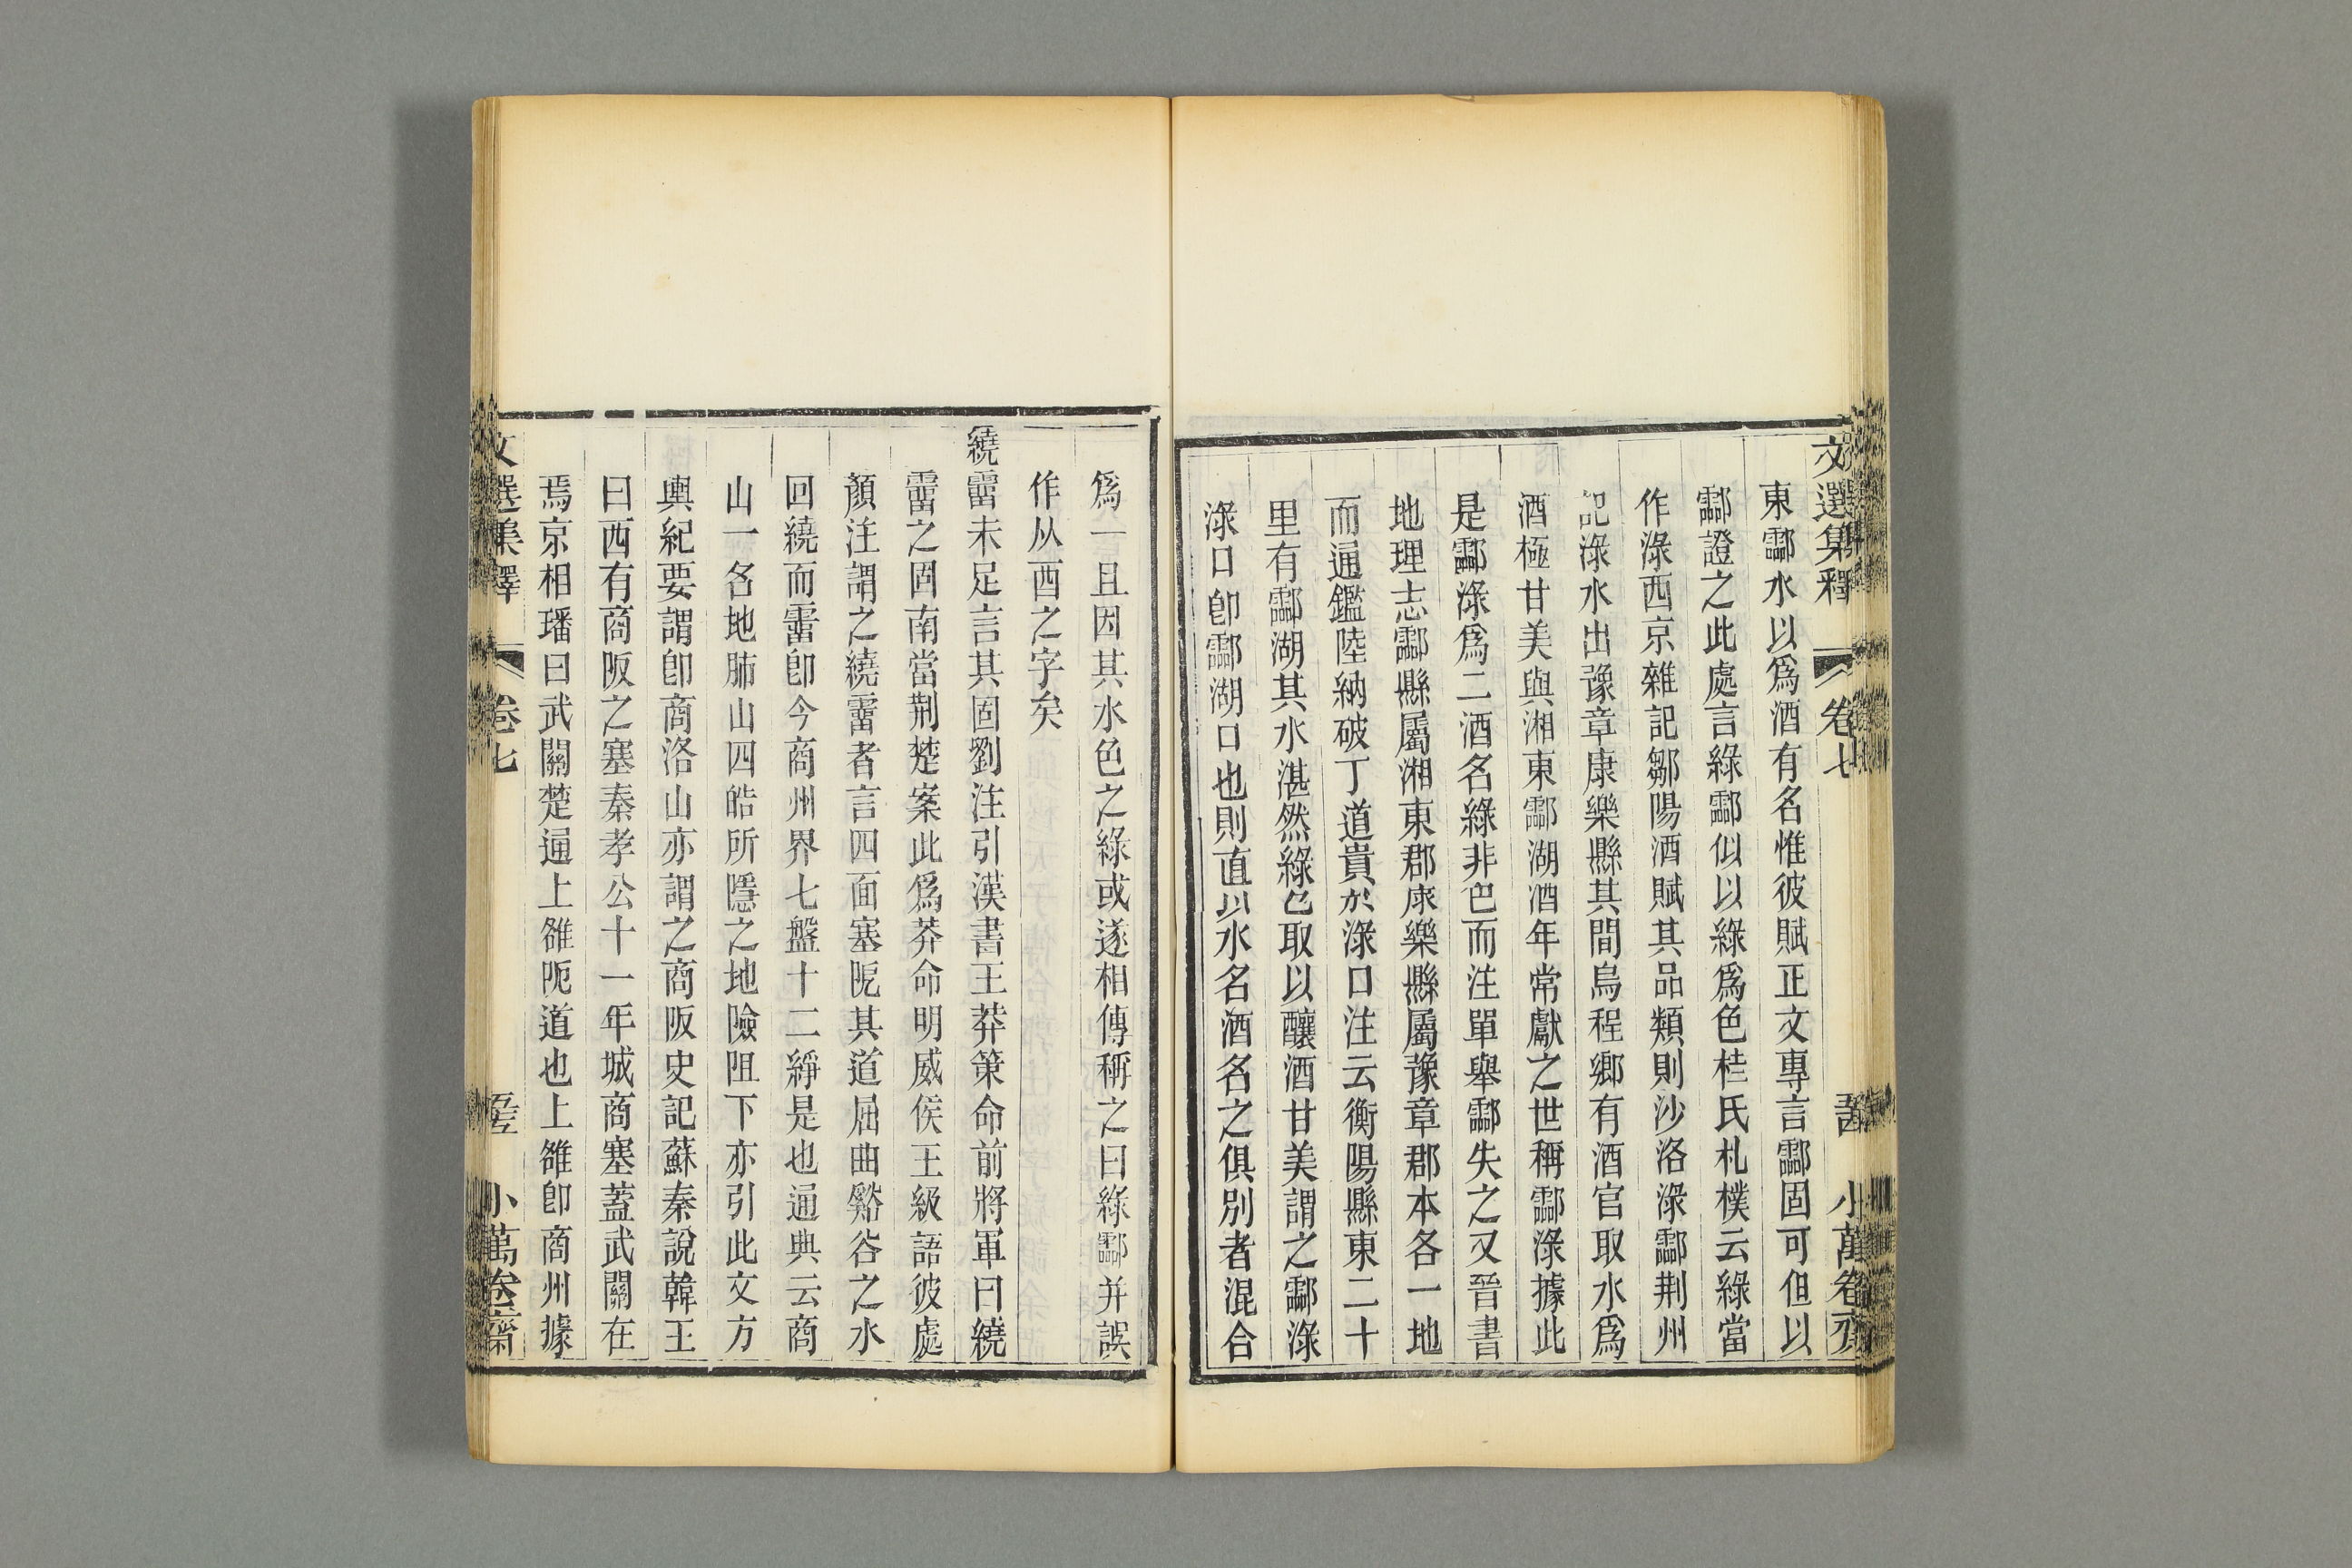 文選集釋 卷七 小萬卷齋
東酃水以爲酒有名惟彼賦正文專言酃固可但以
酃證之此處言綠酃似以綠爲色桂氏札樸云綠當
作淥西京雜記鄒陽酒賦其品類則沙洛淥酃荆州
記淥水出豫章康樂縣其間烏程鄉有酒官取水爲
酒極甘美與湘東酃湖酒年常獻之世稱酃淥據此
是酃淥爲二酒名綠非色而注單舉酃失之又晉書
地理志酃縣屬湘東郡康樂縣屬豫章郡本各一地
而通鑑陸納破丁道貴於淥口注云衡陽縣東二十
里有酃湖其水湛然綠色取以釀酒甘美謂之酃淥
淥口卽酃湖口也則直以水名酒名之俱別者混合
爲一且因其水色之綠或遂相傳稱之曰綠酃并誤
作从酉之字矣
繞霤未足言其固劉注引漢書王莽策命前將軍曰繞
霤之固南當荆楚案此爲莽命明威侯王級語彼處
顏注謂之繞霤者言四面塞阸其道屈曲谿谷之水
回繞而霤卽今商州界七盤十二繂是也通典云商
山一名地肺山四皓所隱之地險阻下亦引此文方
輿紀要謂卽商洛山亦謂之商阪史記蘇秦說韓王
曰西有商阪之塞秦孝公十一年城商塞蓋武關在
焉京相璠曰武關楚通上雒阨道也上雒卽商州據
文選集釋 卷七 小萬卷齋